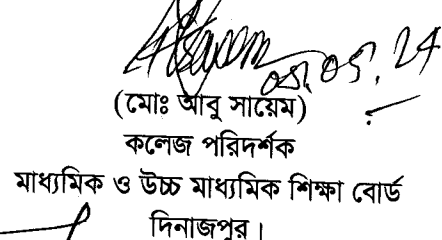 ০৫.০৫.24
(মোঃ আবু সায়েম)
কলেজ পরিদর্শক
মাধ্যমিক ও উচ্চ মাধ্যমিক শিক্ষা বোর্ড
দিনাজপুর।